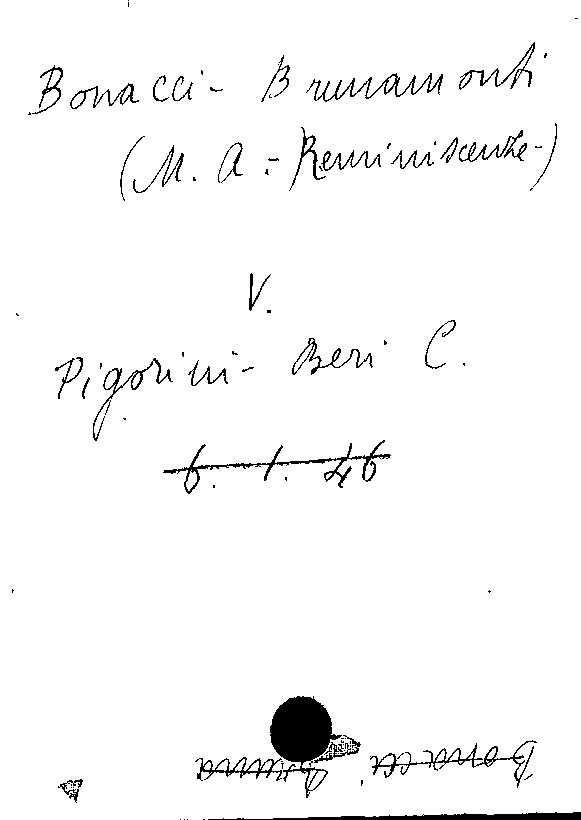 Bonacci- Brunamonti
(M. A.- Reminiscenze-)
V.
Pigorini- Beri C.
6. 1. 46
Bonacci Bruna